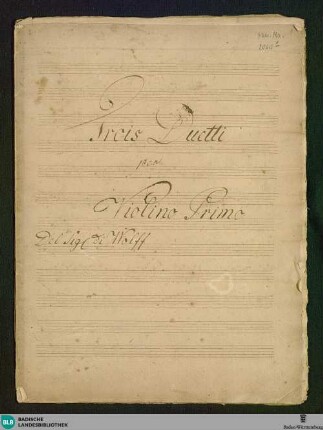 Mus. Hs.
Trois Duetti
pour
Violino Primo
Del Sig. de Wolff
BLB
BADISCHE
LANDESBIBLIOTHEK
Baden-Württemberg